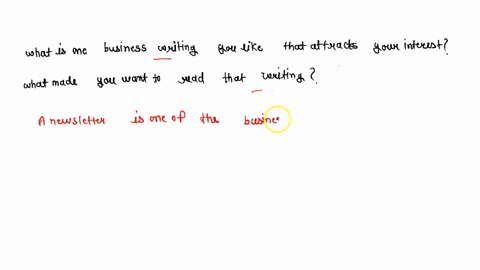 what is one business writing you like that attracts your interest?
what made you want to read that writing?
A newsletter is one of the busine